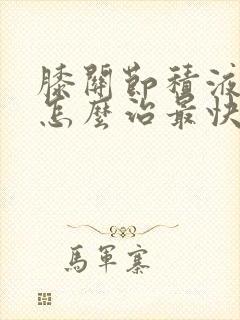 膝關節積液
怎麼治最快
馬軍寨